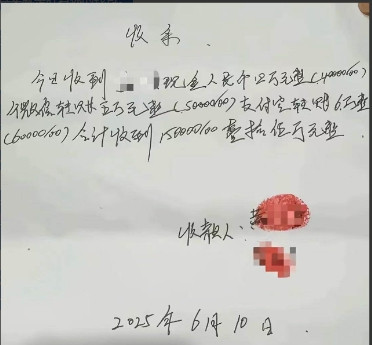 收条
今日收到 现金人民币四万元整(40000.00)
微信转账五万元整(50000.00)支付宝转账6万整
(60000.00)合计收到150000.00壹拾伍万元整
收款人:黄
2025年6月10日